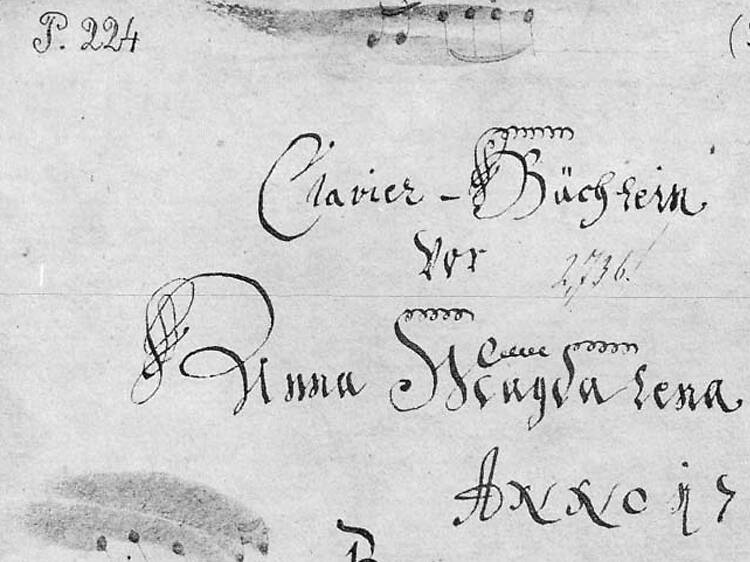 P. 224
Clavier-Büchlein
vor
2,736.
Anna Magdalena
ANNO 17
B